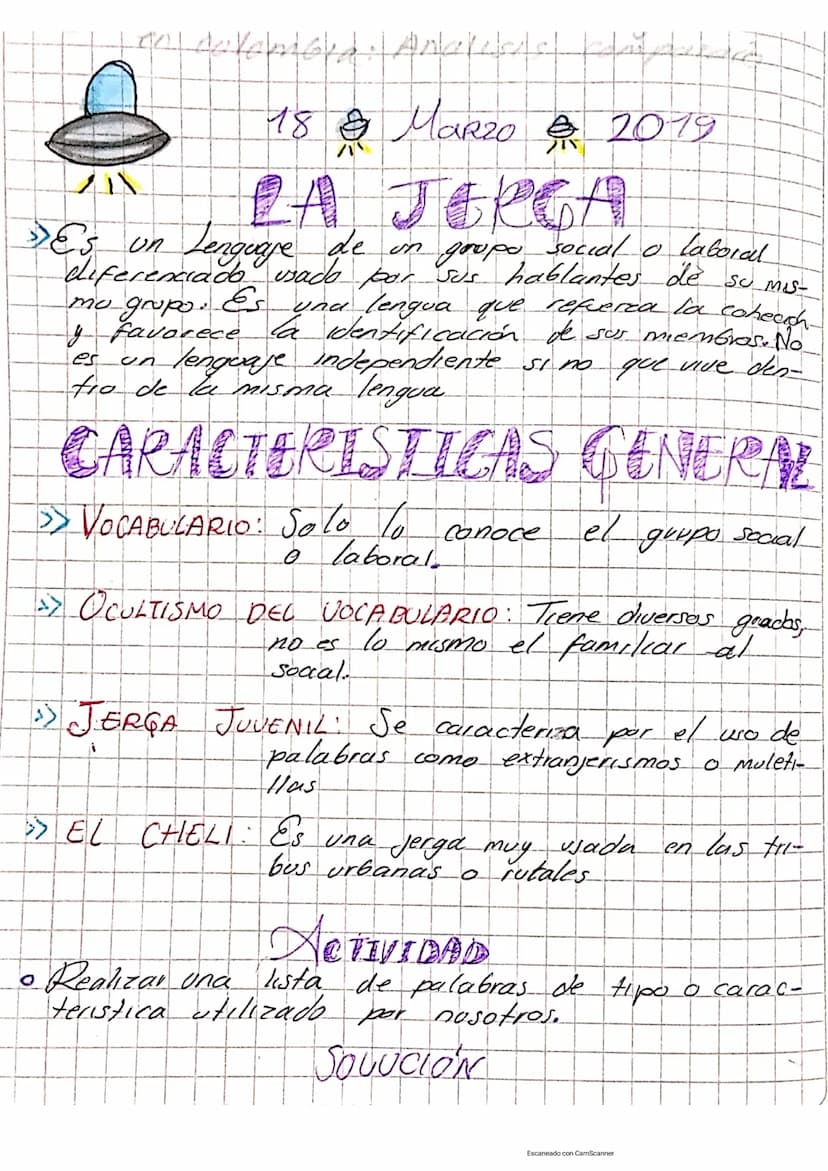 en colombia: Analisis
18 Marzo 2019
LA JERGA
Es un Lenguaje de un grupo social o laboral
diferenciado usado por sus hablantes de su mis-
mo grupo. Es una lengua que refuerza la cohecion
y favorece la identificación de sus miembros. No
es un lenguaje independiente si no que vive den-
tro de la misma lengua
CARACTERISTICAS GENERAL
>> VOCABULARIO: Solo lo conoce el grupo social
o laboral.
>> OCULTISMO DEL VOCABULARIO: Tiene diversos grados,
no es lo mismo el familiar al
social.
>> JERGA JUVENIL: Se caracteriza por el uso de
palabras como extranjerismos o muleti-
llas
>> EL CHELI: Es una jerga muy usada en las tri-
bus urbanas o rutales
ACTIVIDAD
o Realizar una lista de palabras de tipo o carac-
teristica utilizado por nosotros.
SOLUCIÓN
Escaneado con CamScanner